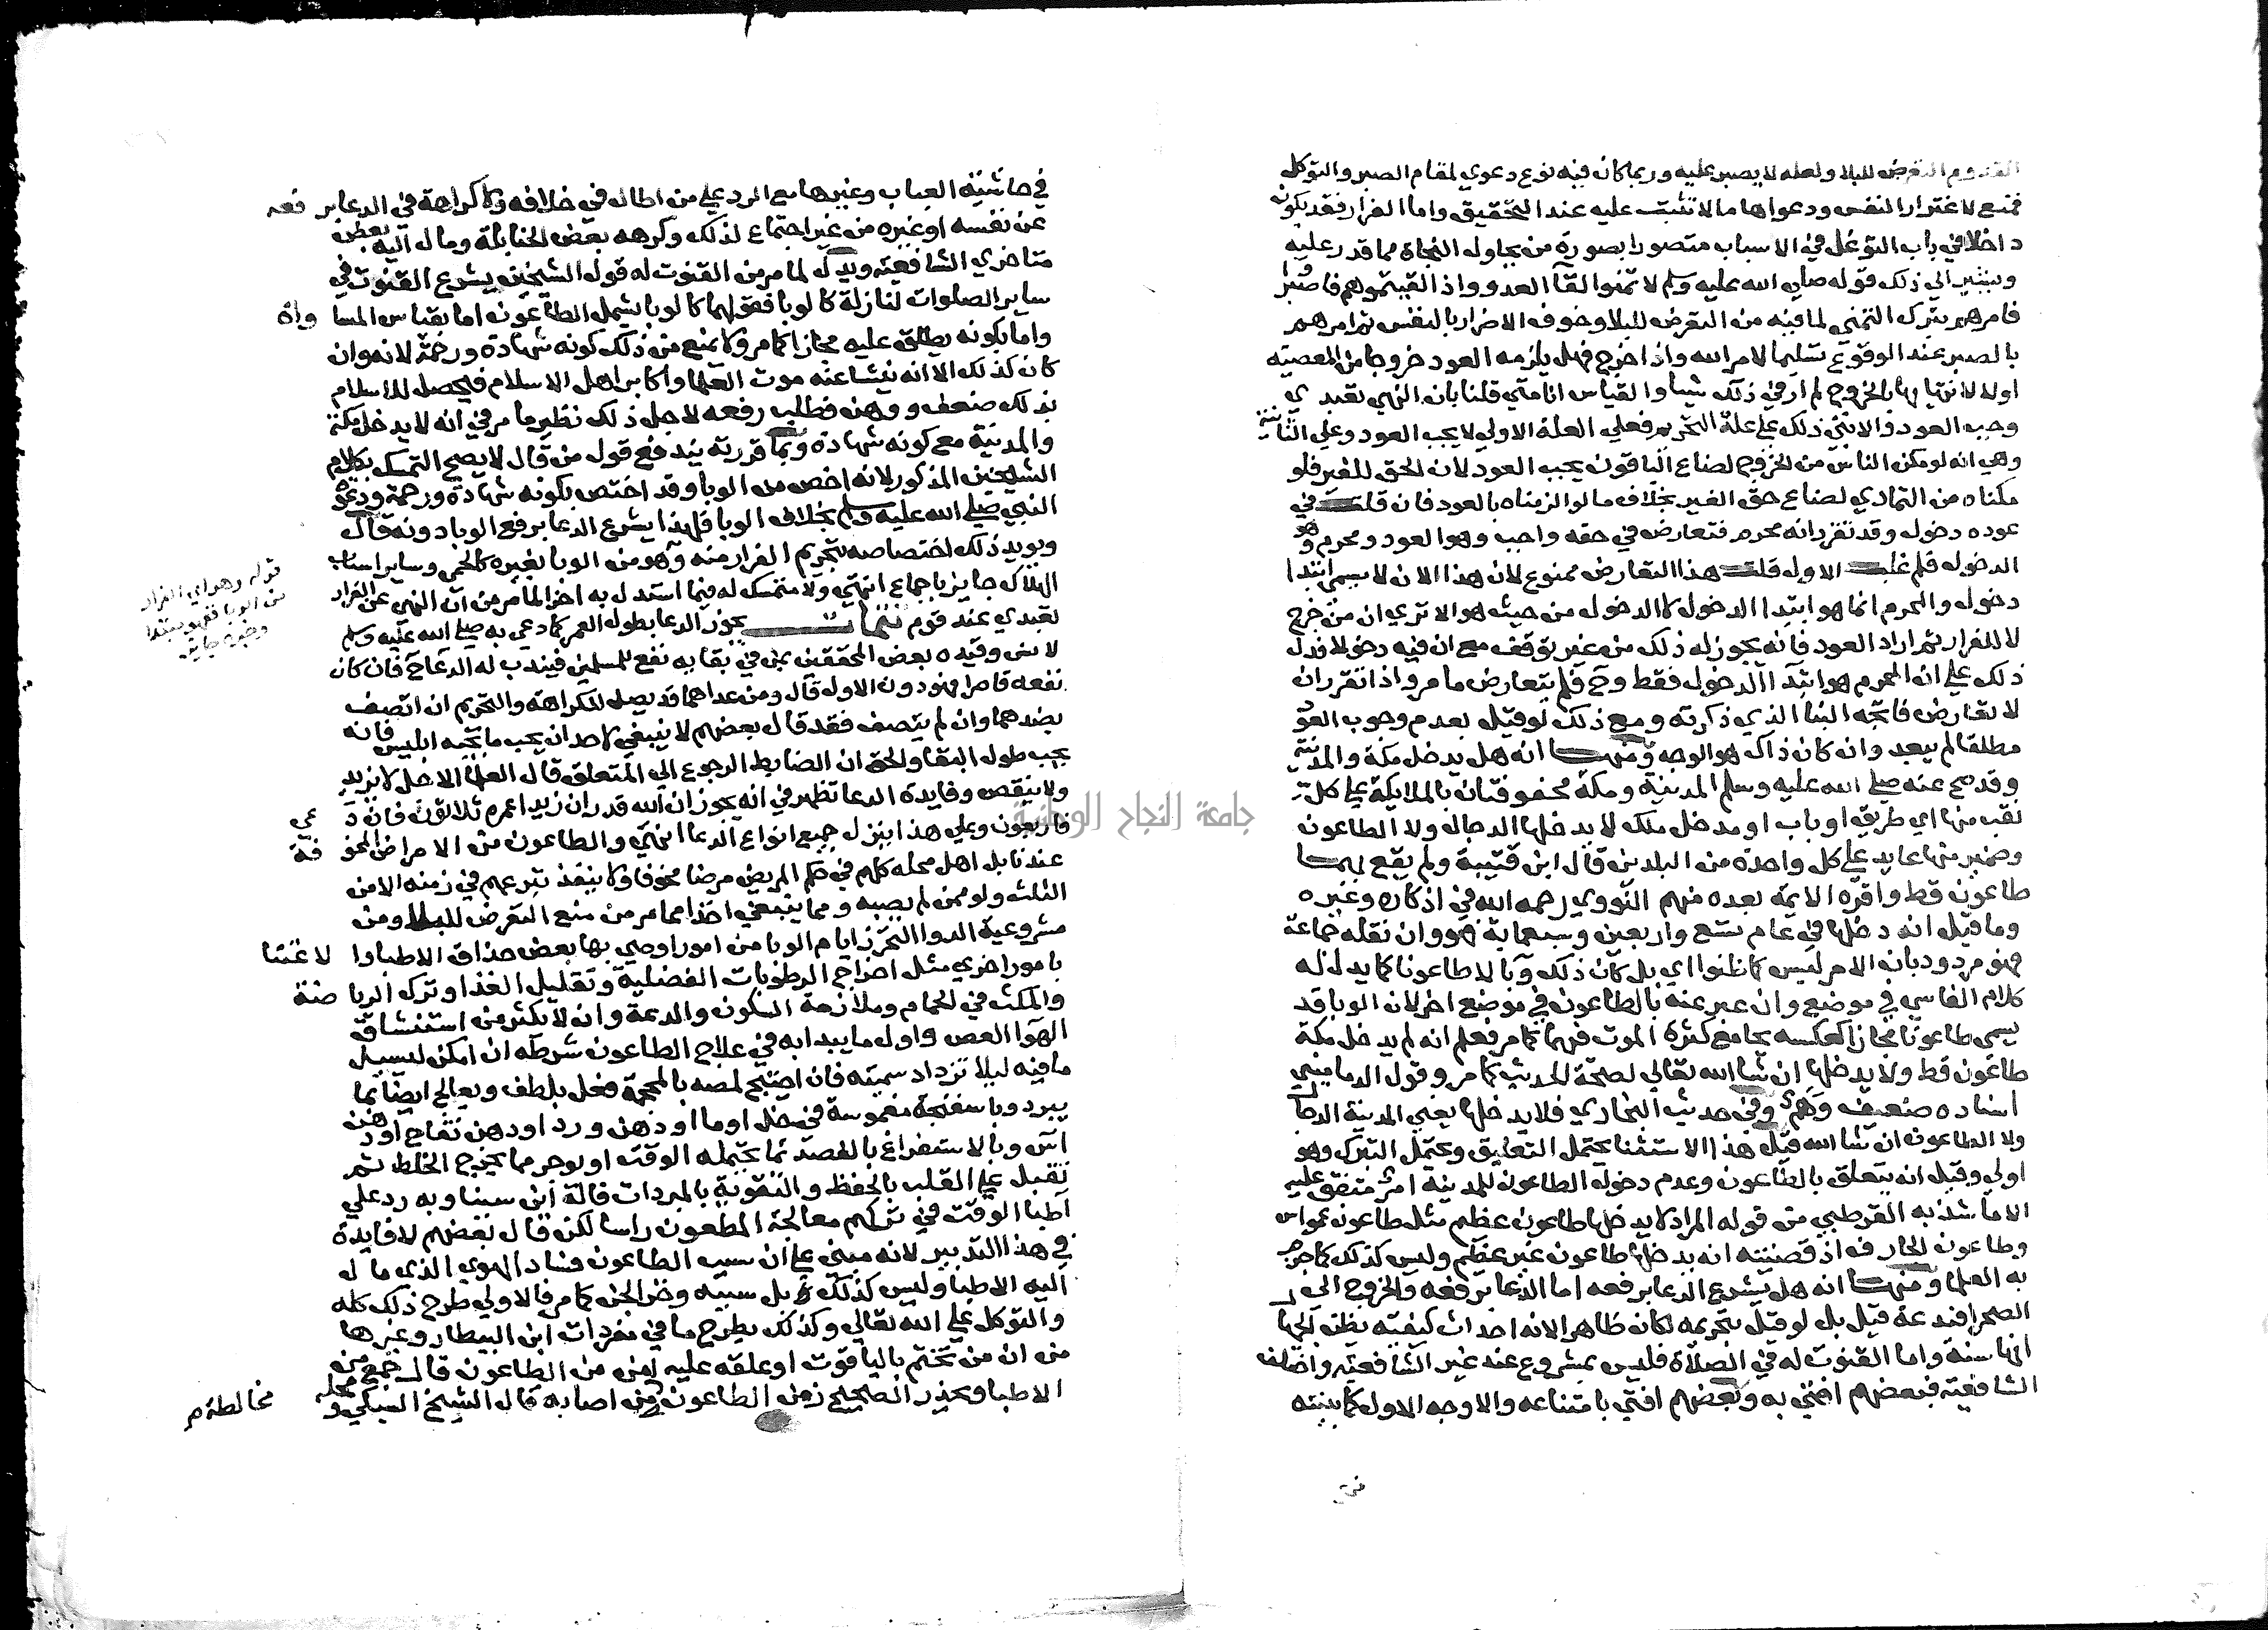 القدوم التعرض للبلا ولعله لا يصبر عليه وربما كان فيه نوع دعوي لمقام الصبر والتوكل
فمنع لاغترار النفس ودعواها ما لا تثبت عليه عند التحقيق واما الفرار فقد يكون
داخلا في باب التوغل في الاسباب متصورا بصورة من يحاول النجاة مما قدر عليه
ويشير الي ذلك قوله صلي الله عليه وسلم لا تمنوا لقا العدو واذا لقيتموهم فاصبروا
فامرهم بترك التمني لما فيه من التعرض للبلا وخوف الاضرار بالنفس ثم امرهم
بالصبر عند الوقوع تسليما لامر الله واذا خرج فهل يلزمه العود خروجا من المعصية
اولا لانتهايها بالخروج لم ار في ذلك شيا والقياس انا متي قلنا بان النهي تعبدي
وجب العود والا بنني ذلك علي علة التحريم فعلي العلة الاولي لا يجب العود وعلي الثانية
وهي انه لو مكن الناس من الخروج لضاع الباقون يجب العود لان الحق للغير فلو
مكناه من التمادي لضاع حق الغير بخلاف ما لو الزمناه بالعود فان قلت في
عوده دخول وقد تقرر انه محرم فتعارض في حقه واجب وهو العود ومحرم وهو
الدخول فلم غلب الاول قلت هذا التعارض ممنوع لان هذا الان لا يسمي ابتدا
دخول والمحرم انما هو ابتدا الدخول كالدخول من حيث هو الا تري ان من خرج
لا للفرار ثم اراد العود فانه يجوز له ذلك من غير توقف مع ان فيه دخولا فدل
ذلك علي ان المحرم هو ابتدا الدخول فقط وح فلم يتعارض ما مر واذا تقرر ان
لا تعارض فاتجه البنا الذي ذكرته ومع ذلك لو قيل بعدم وجوب العود
مطلقا لم يبعد وان كان ذاك هو الوجه ومنها انه هل يدخل مكة والمدينة
وقد صح عنه صلي الله عليه وسلم المدينة ومكة محفوفتان بالملايكة علي كل
نقب منها اي طريق او باب او مدخل ملك لا يدخلها الدجال ولا الطاعون
وضمير منها عايد علي كل واحدة من البلدين قال ابن قتيبة ولم يقع بها
طاعون قط واقره الايمة بعده منهم النووي رحمه الله في اذكاره وغيره
وما قيل انه دخلها في عام تسع واربعين وسبعماية فهو وان نقله جماعة
فهو مردود بان الامر ليس كما ظنوا اي بل كان ذلك وبا لا طاعونا كما يدل له
كلام الفاسي في موضع وان عبر عنه بالطاعون في موضع اخر لان الوبا قد
يسمي طاعونا مجازا كعكسه بجامع كثرة الموت فيهما كما مر فعلم انه لم يدخل مكة
طاعون قط ولا يدخلها ان شا الله تعالي لصحة الحديث كما مر وقول الدماميني
اسناده ضعيف وهم وفي حديث البخاري فلا يدخلها يعني المدينة الدجال
ولا الطاعون ان شا الله قيل هذا الاستثنا يحتمل التعليق ويحتمل التبرك وهو
اولي وقيل انه يتعلق بالطاعون وعدم دخول الطاعون للمدينة امر متفق عليه
الا ما شذ به القرطبي من قوله المراد لا يدخلها طاعون عظيم مثل طاعون عمواس
وطاعون الجارف اذ قضيته انه يدخلها طاعون غير عظيم وليس كذلك كما جزم
به العلما ومنها انه هل يشرع الدعا برفعه اما الدعا برفعه والخروج الي
الصحرا فبدعة قيل بل لو قيل بتحريمه لكان ظاهرا لانه احداث كيفيه يظن الجهال
انها سنة واما القنوت له في الصلاة فليس بمشروع عند غير الشافعيه واختلف
الشافعية فبعضهم افتي به وبعضهم افتي بامتناعه والاوجه الاول كما بينته
في
في حاشية العباب وغيرها مع الرد علي من اطال في خلافه ولا كراهة في الدعا برفعه
عن نفسه او غيره من غير اجتماع لذلك وكرهه بعض الحنابلة ومال اليه بعض
متاخري الشافعية ويدل لما مر من القنوت له قول الشيخين يشرع القنوت في
ساير الصلوات لنازلة كالوبا فقولهما كالوبا يشمل الطاعون اما بقياس المساواة
واما بكونه يطلق عليه مجازا كما مر ولا يمنع من ذلك كونه شهادة ورحمة لانه وان
كان كذلك الا انه ينشا عنه موت العلما واكابر اهل الاسلام فيحصل للاسلام
بذلك ضعف ووهن فطلب رفعه لاجل ذلك نظير ما مر في انه لا يدخل مكة
والمدينة مع كونه شهادة وبما قررته يندفع قول من قال لا يصح التمسك بكلام
الشيخين المذكور لانه اخص من الوبا وقد اختص بكونه شهادة ورحمة ودعوة
النبي صلي الله عليه وسلم بخلاف الوبا فلهذا يشرع الدعا برفع الوبا دونه قال
ويويد ذلك اختصاصه بتحريم الفرار منه وهو من الوبا بغيره كالحمي وساير اسباب
الهلاك جايز باجماع انتهي ولا متمسك له فيما استدل به اخرا لما مر من ان النهي عن الفرار
تعبدي عند قوم تنبيهات يجوز الدعا بطول العمر كما دعي به صلي الله عليه وسلم
لانس وقيده بعض المحققين بمن في بقايه نفع للمسلمين فيندب له الدعا ح فان كان
نفعه قاصرا فهو دون الاول قال ومن عداهما قد يصل للكراهة والتحريم ان اتصف
بضدهما وان لم يتصف فقد قال بعضهم لا ينبغي لاحد ان يحب ما يحبه ابليس فانه
يحب طول البقا والحق ان الضابط الرجوع الي المتعلق قال العلما الاجل لا يزيد
ولا ينقص وفايدة الدعا تظهر في انه يجوز ان الله قدر ان زيدا عمره ثلاثون فان دعي
فاربعون وعلي هذا ينزل جميع انواع الدعا انتهي والطاعون من الامراض المخوفة
عندنا بل اهل محله كلهم في حكم المريض مرضا مخوفا ولا ينفذ تبرعهم في زمنه الا من
الثلث ولو ممن لم يصبه ومما ينبغي اخذا مما مر من منع التعرض للبلا ومن
مشروعية الدوا التحرز ايام الوبا من امور اوصي بها بعض حذاق الاطبا والاعتنا
بامور اخري مثل اخراج الرطوبات الفضلية وتقليل الغذا وترك الرياضة
والمكث في الحمام وملازمة السكون والدعة وان لا يكثر من استنشاق
الهوا العفن واول ما يبدا به في علاج الطاعون شرطه ان امكن ليسيل
ما فيه ليلا تزداد سميته فان احتيج لمصه بالمحجمة فعل بلطف ويعالج ايضا بما
يبرد وباسفنجة مغموسة في خل او ما او دهن ورد او دهن تفاح او دهن
اس وبالاستفراغ بالفصد بما يحتمله الوقت او يوخر مما يخرج الخلط ثم
تقبل علي القلب بالحفظ والتقوية بالمبردات قاله ابن سينا وبه رد علي
اطبا الوقت في تركهم معالجة المطعون راسا لكن قال بعضهم لا فايدة
في هذا التدبير لانه مبني علي ان سبب الطاعون فساد الهوي الذي مال
اليه الاطبا وليس كذلك بل سببه وخز الجن كما مر فالاولي طرح ذلك كله
والتوكل علي الله تعالي وكذلك يطرح ما في مفردات ابن البيطار وغيرها
من ان من تختم بالياقوت او علقه عليه امن من الطاعون قال جمع من
الاطبا ويحذر الصحيح زمن الطاعون من اصابه قال الشيخ السبكي و محله
مخالطة
قوله وهو اي الفرار
من الوبا فهو مبتدا
وخبره جايز
جامعة النجاح الوطنية